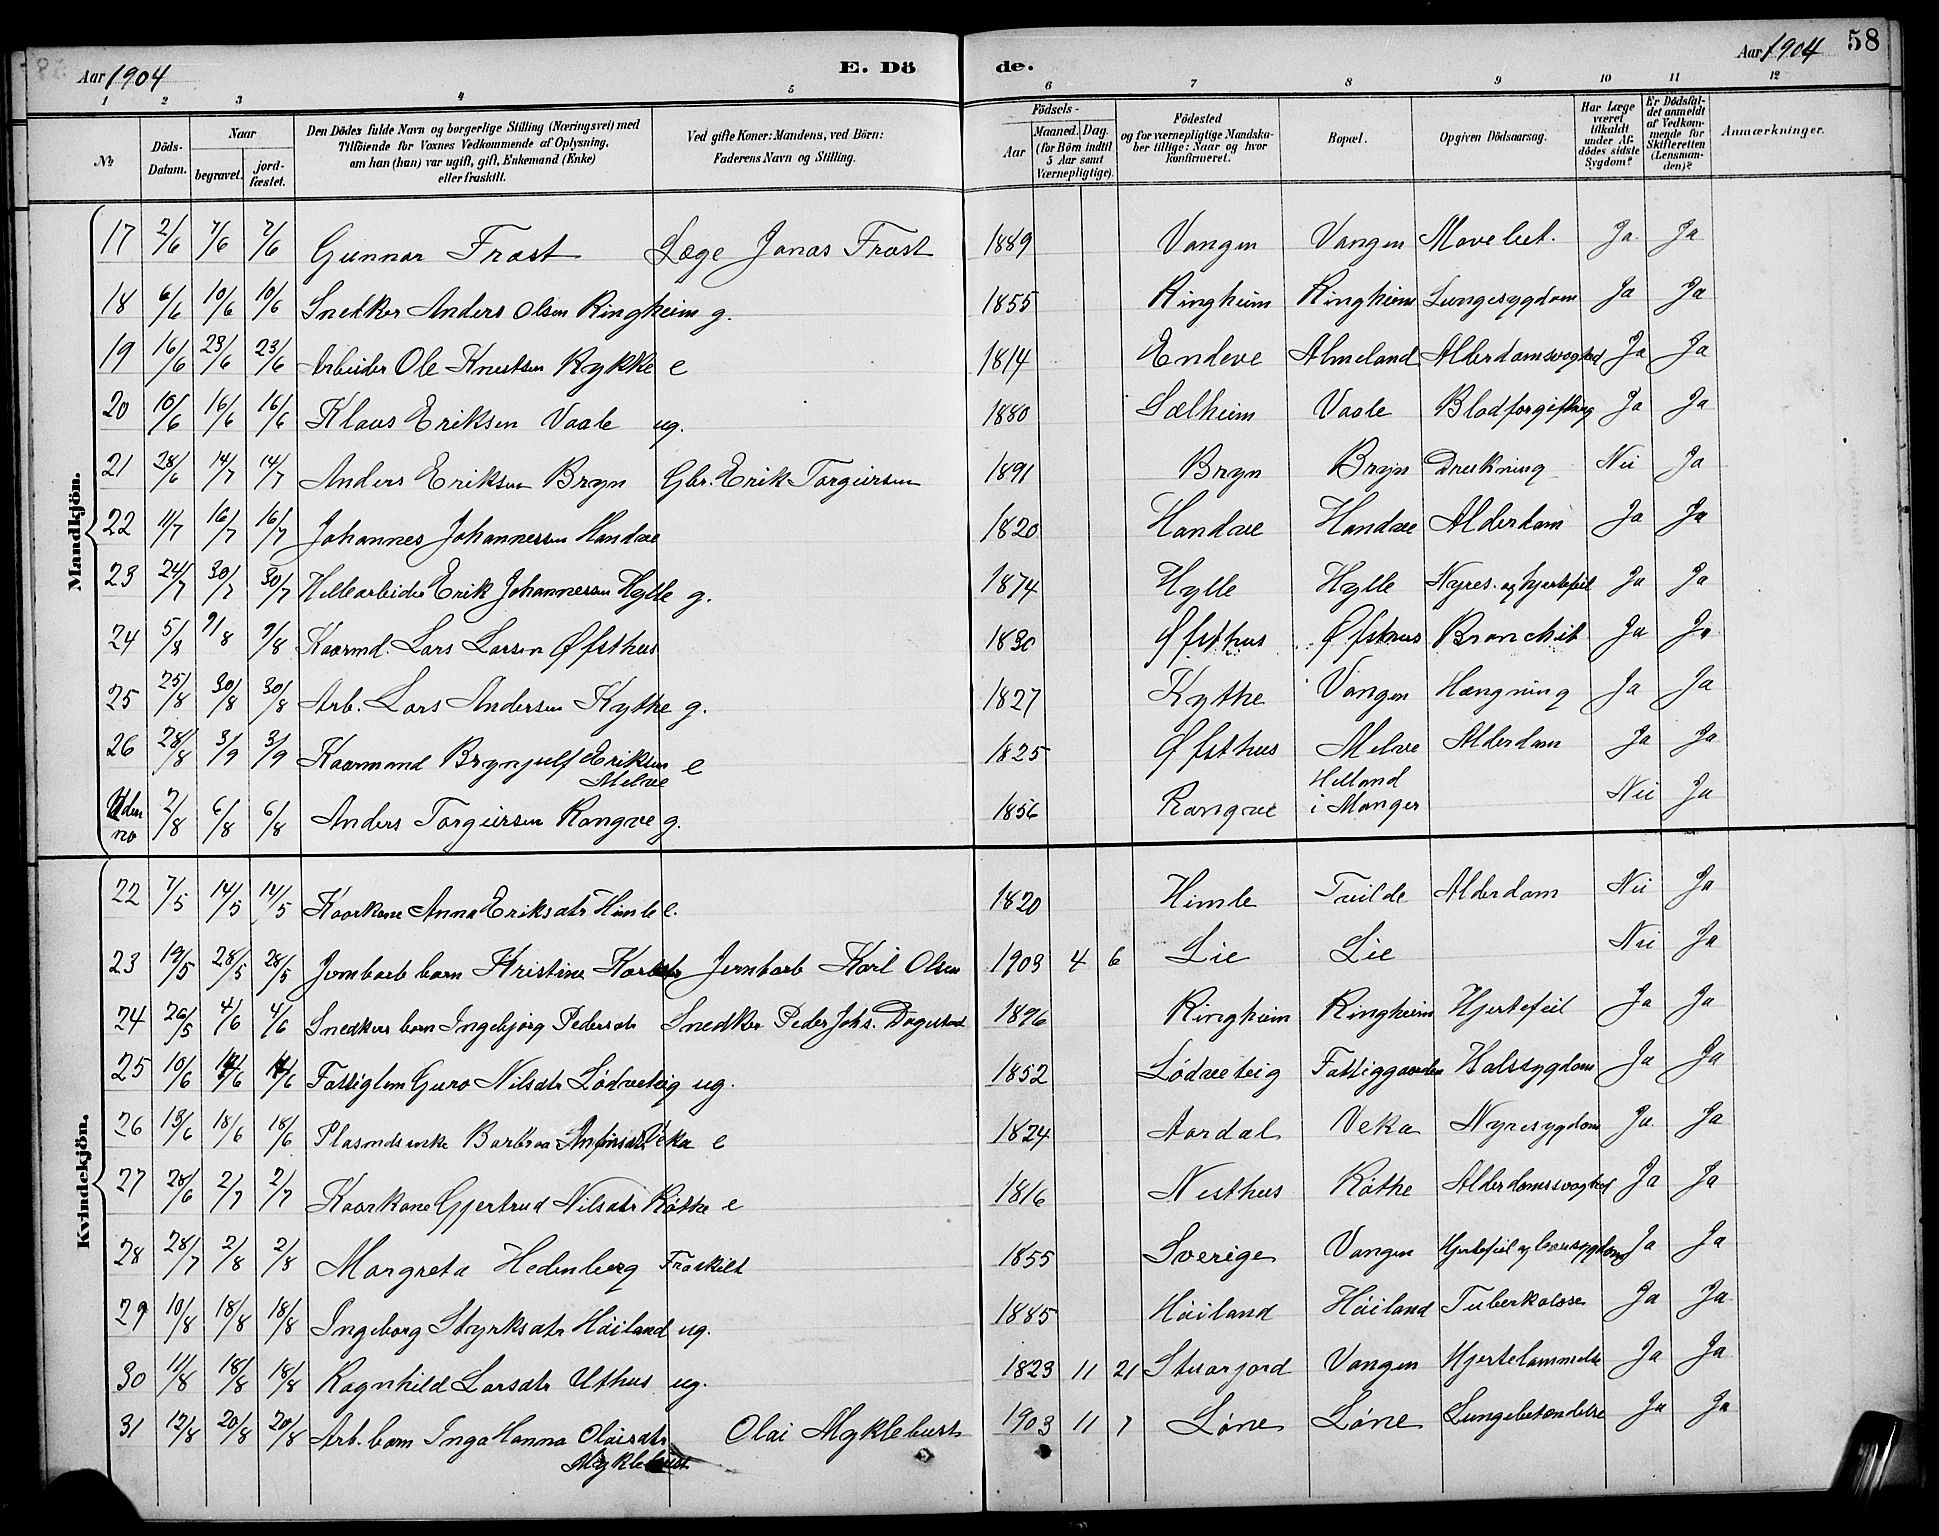 Aar 1904 E. Dö de. Aar 1904 58
1 2 3 4 5 6 7 8 9 10 11 12
№ Döds-Datum. Naar begravet. jord-fæstet. Den Dödes fulde Navn og borgerlige Stilling (Næringsvei) med Tilföiende for Voxnes Vedkommende af Oplysning, om han (hun) var ugift, gift, Enkemand (Enke) eller fraskilt. Ved gifte Koner: Mandens, ved Börn: Faderens Navn og Stilling. Födsels- Aar Maaned. Dag. (for Börn indtil 5 Aar samt Værnepligtige). Födested og for værnepligtige Mandskaber tillige: Naar og hvor konfirmeret. Bopæl. Opgiven Dödsaarsag. Har Læge været tilkaldt under Afdödes sidste Sygdom? Er Dödsfaldet anmeldt af Vedkommende for Skifteretten (Lensmanden)? Anmærkninger.
Mandkjön.
17 2/6 7/6 7/6 Gunnar Frost Læge Jonas Frost 1889 Vangen Vangen Ja Ja
18 6/6 10/6 10/6 Snedker Anders Olsen Ringheim g. 1855 Ringheim Ringheim Lungesygdom Ja Ja
19 16/6 23/6 23/6 Arbeider Ole Knutsen Rykke e 1814 Endeve Almeland Alderdomsvaghed Ja Ja
20 10/6 16/6 16/6 Klaus Eriksen Vaale ug. 1880 Sælheim Vaale Blodforgiftning Ja Ja
21 28/6 14/7 14/7 Anders Eriksen Bryn Gbr. Erik Torgeirsen 1891 Bryn Bryn Drukning Nei Ja
22 11/7 16/7 16/7 Johannes Johannessen Handve 1820 Handve Handve Alderdom Ja Ja
23 24/7 30/7 30/7 Hellearbeider Erik Johannessen Hylle g. 1874 Hylle Hylle Nyres. og hjertefeil Ja Ja
24 5/8 9/8 9/8 Kaarmd. Lars Larsen Øfsthus 1830 Øfsthus Øfsthus Bronchit Ja Ja
25 25/8 30/8 30/8 Arb. Lars Andersen Kythe g. 1827 Kythe Vangen Hængning Ja Ja
26 28/8 3/9 3/9 Kaarmand Brynjulf Eriksen Melve e 1825 Øfsthus Melve Alderdom Ja Ja
Uden no 2/8 6/8 6/8 Anders Torgeirsen Rongve g. 1856 Rongve Helland i Manger Nei Ja
Kvindekjön.
22 7/5 14/5 14/5 Kaarkone Anna Eriksdtr Himle e. 1820 Himle Tvilde Alderdom Nei Ja
23 19/5 28/5 28/5 Jernbarb barn Kristine Karlsdtr Jernbarb Karl Olsen 1903 4 6 Lie Lie Nei Ja
24 26/5 4/6 4/6 Snedkers barn Ingebjørg Pedersdtr Snedker Peder Johs. Dagestad 1896 Ringheim Ringheim Hjertefeil Ja Ja
25 10/6 Fattiglem Guro Nilsdtr Lødveteig ug. 1852 Lødveteig Fattiggaarden Halssygdom Ja Ja
26 13/6 18/6 18/6 Plasmdsenke Barbraa Veka e 1824 Aardal Veka Nyresygdom Ja Ja
27 28/6 2/7 2/7 Kaarkone Gjertrud Nilsdtr Røthe e 1816 Nesthus Røthe Alderdomsvaghed Ja Ja
28 28/7 2/8 2/8 Margreta Hedenberg Fraskilt 1855 Sverige Vangen Hjertefeil og Ja Ja
29 10/8 18/8 18/8 Ingeborg Styrksdtr Høiland ug. 1885 Høiland Høiland Tuberkulose Ja Ja
30 11/8 18/8 18/8 Ragnhild Larsdtr Uthus ug. 1823 11 21 Vangen Hjertelammelse Ja Ja
31 12/8 20/8 20/8 Arb. barn Inga Hanna Olaisdtr Myklebust Olai Myklebust 1903 11 7 Løne Løne Lungebetændelse Ja Ja